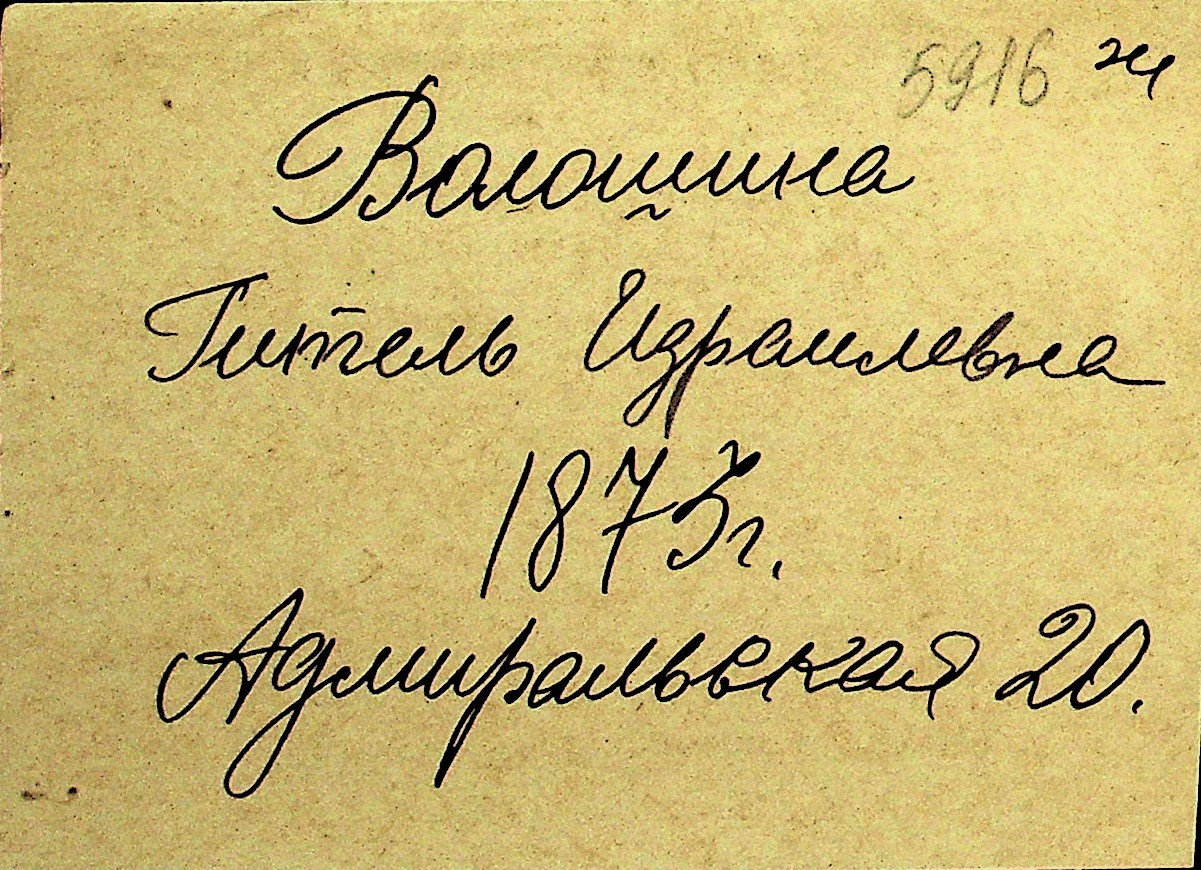 5916 ж
Волошина
Гитель Израилевна
1873г.
Адмиральская 20.